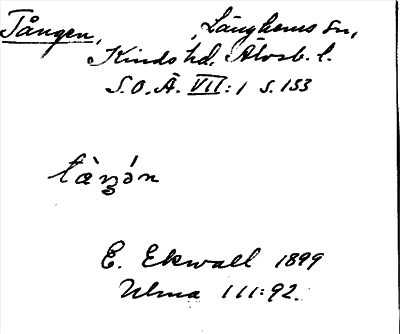 Tången, Länghems sn,
Kinds hd, Älvsb. l.
S.O.Ä. VII:1 s. 133
tàŋən
E. Ekwall 1899
Ulma 111:92.